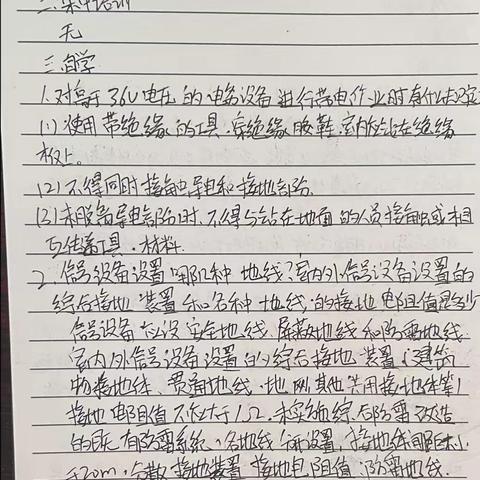 二、集中培训
无
三、自学
1.对高于36V电压的电务设备进行带电作业时有什么规定
(1)使用带绝缘的工具,穿绝缘胶鞋,室内应站在绝缘
板上。
(2)不得同时接触导电和接地部分。
(3)未脱离导电部分时,不得与站在地面的人员接触或相
互传递工具、材料。
2.信号设备设置哪几种地线?室内外信号设备设置的
综合接地装置和各种地线的接地电阻值是多少
信号设备应设安全地线、屏蔽地线和防雷地线
室内外信号设备设置的综合接地装置(建筑
物接地体、贯通地线、地网其他共用接地体等)
接地电阻值不应大于1Ω,未实施综合防雷改造
的既有防雷系统,各地线分开设置,接地体间距不小
于20m,分散接地装置接地电阻值:防雷地线、